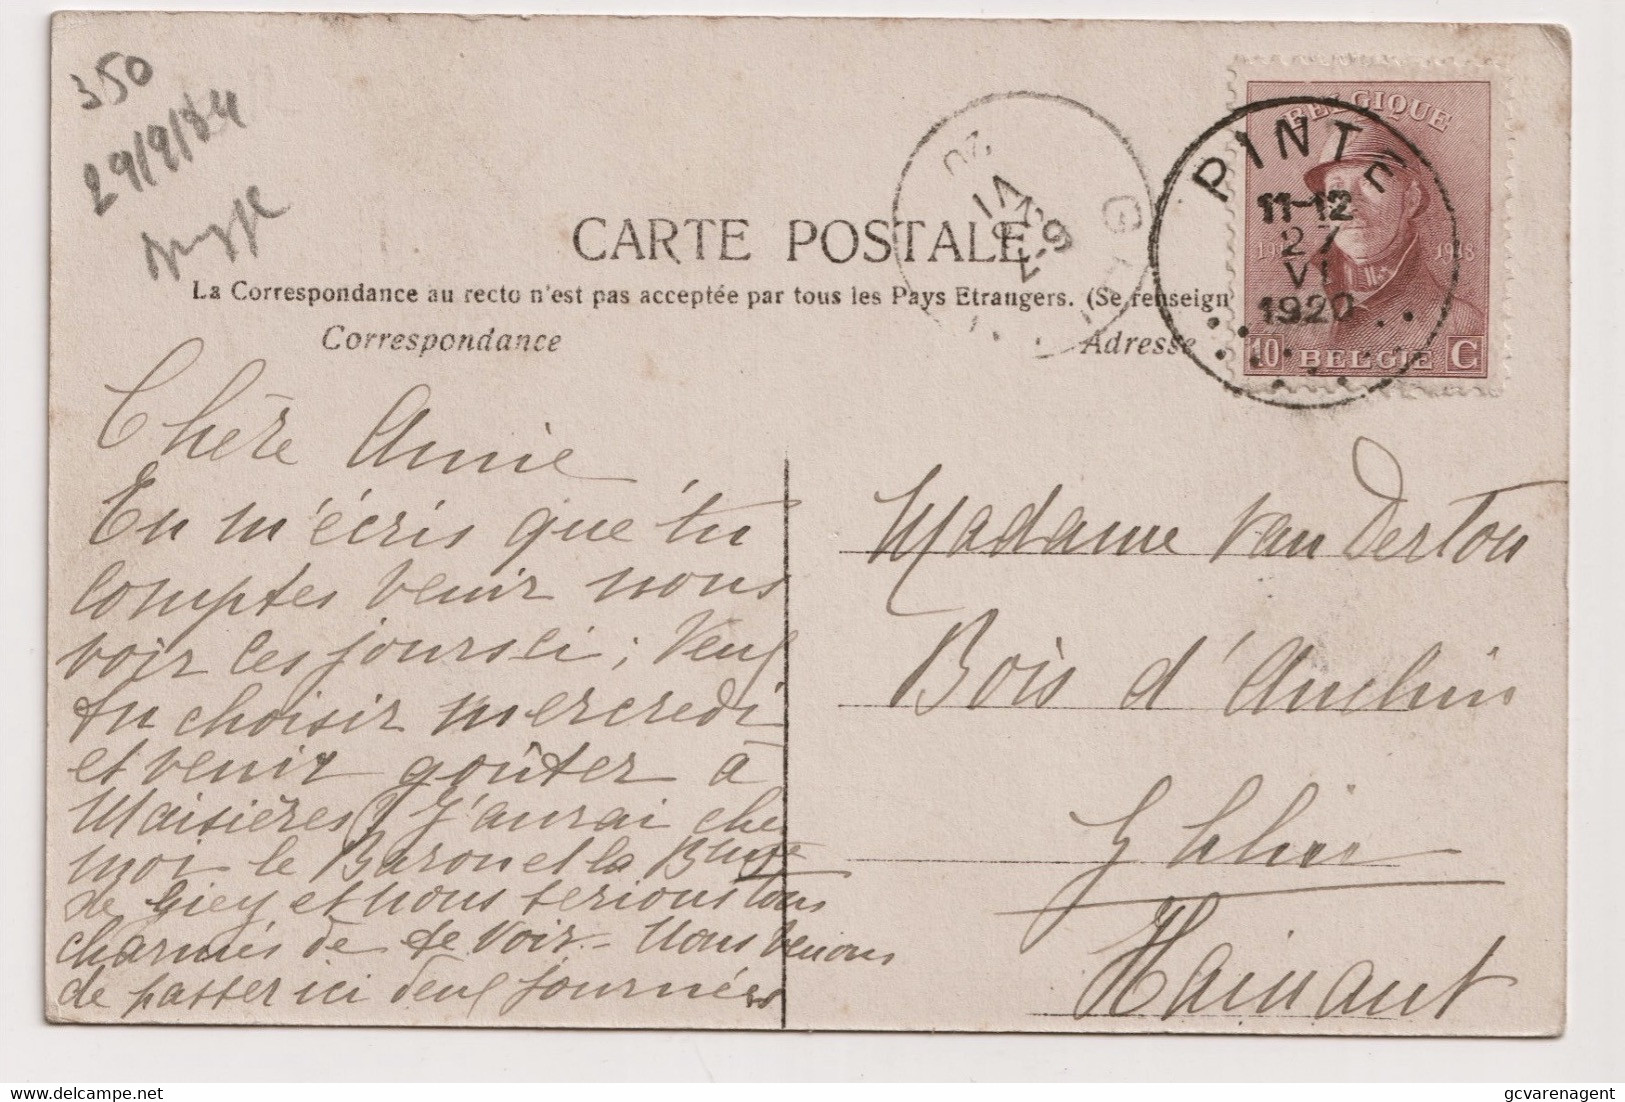 350
29/9/84
CARTE POSTALE
La Correspondance au recto n'est pas acceptée par tous les Pays Etrangers. (Se renseign
Correspondance
Adresse
BELGIQUE
PINTE
11-12
27
VI
1920
1918
10 BELGIE C
VI
20
6-7
Chère Annie
En m'écris que tu
comptes venir nous
voir ces jours ci ; Veux
tu choisir mercredi
et venir goûter à
Maisières ? J'aurai chez
moi le Baron et la Bnne
de Giey et nous serions tous
charmés de te voir - Nous venons
de passer ici deux journées
Madame Van Derton
Bois d'
Ghlin
Hainaut
delcampe.net
gcvarenagent